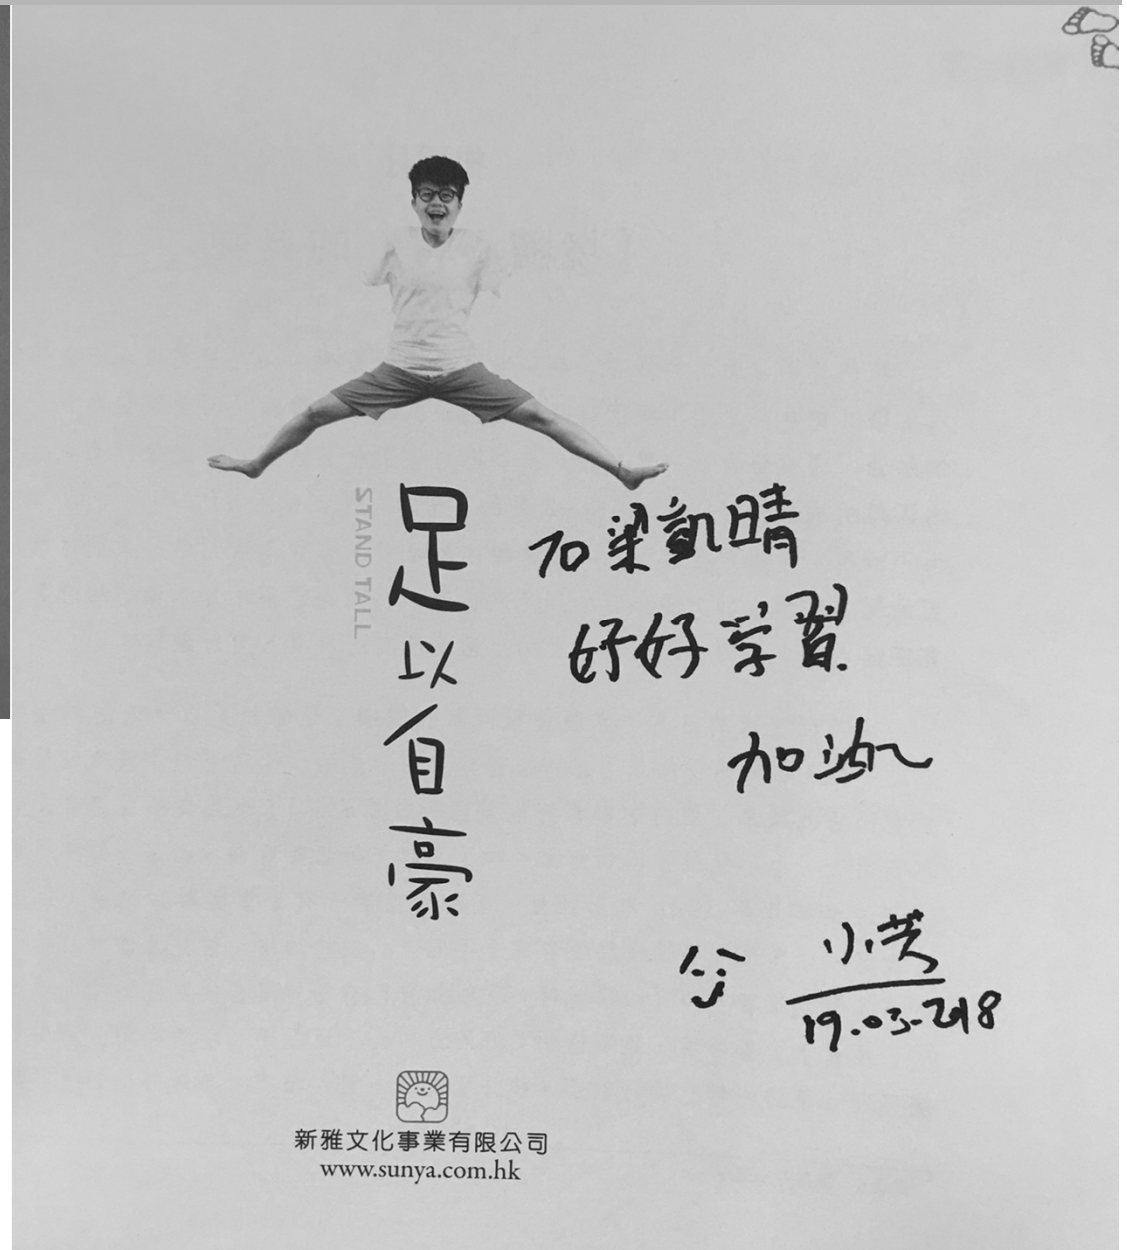 足以自豪
STAND TALL
To 梁凱晴
好好学習
加油
小芝
19.03.2018
新雅文化事業有限公司
www.sunya.com.hk